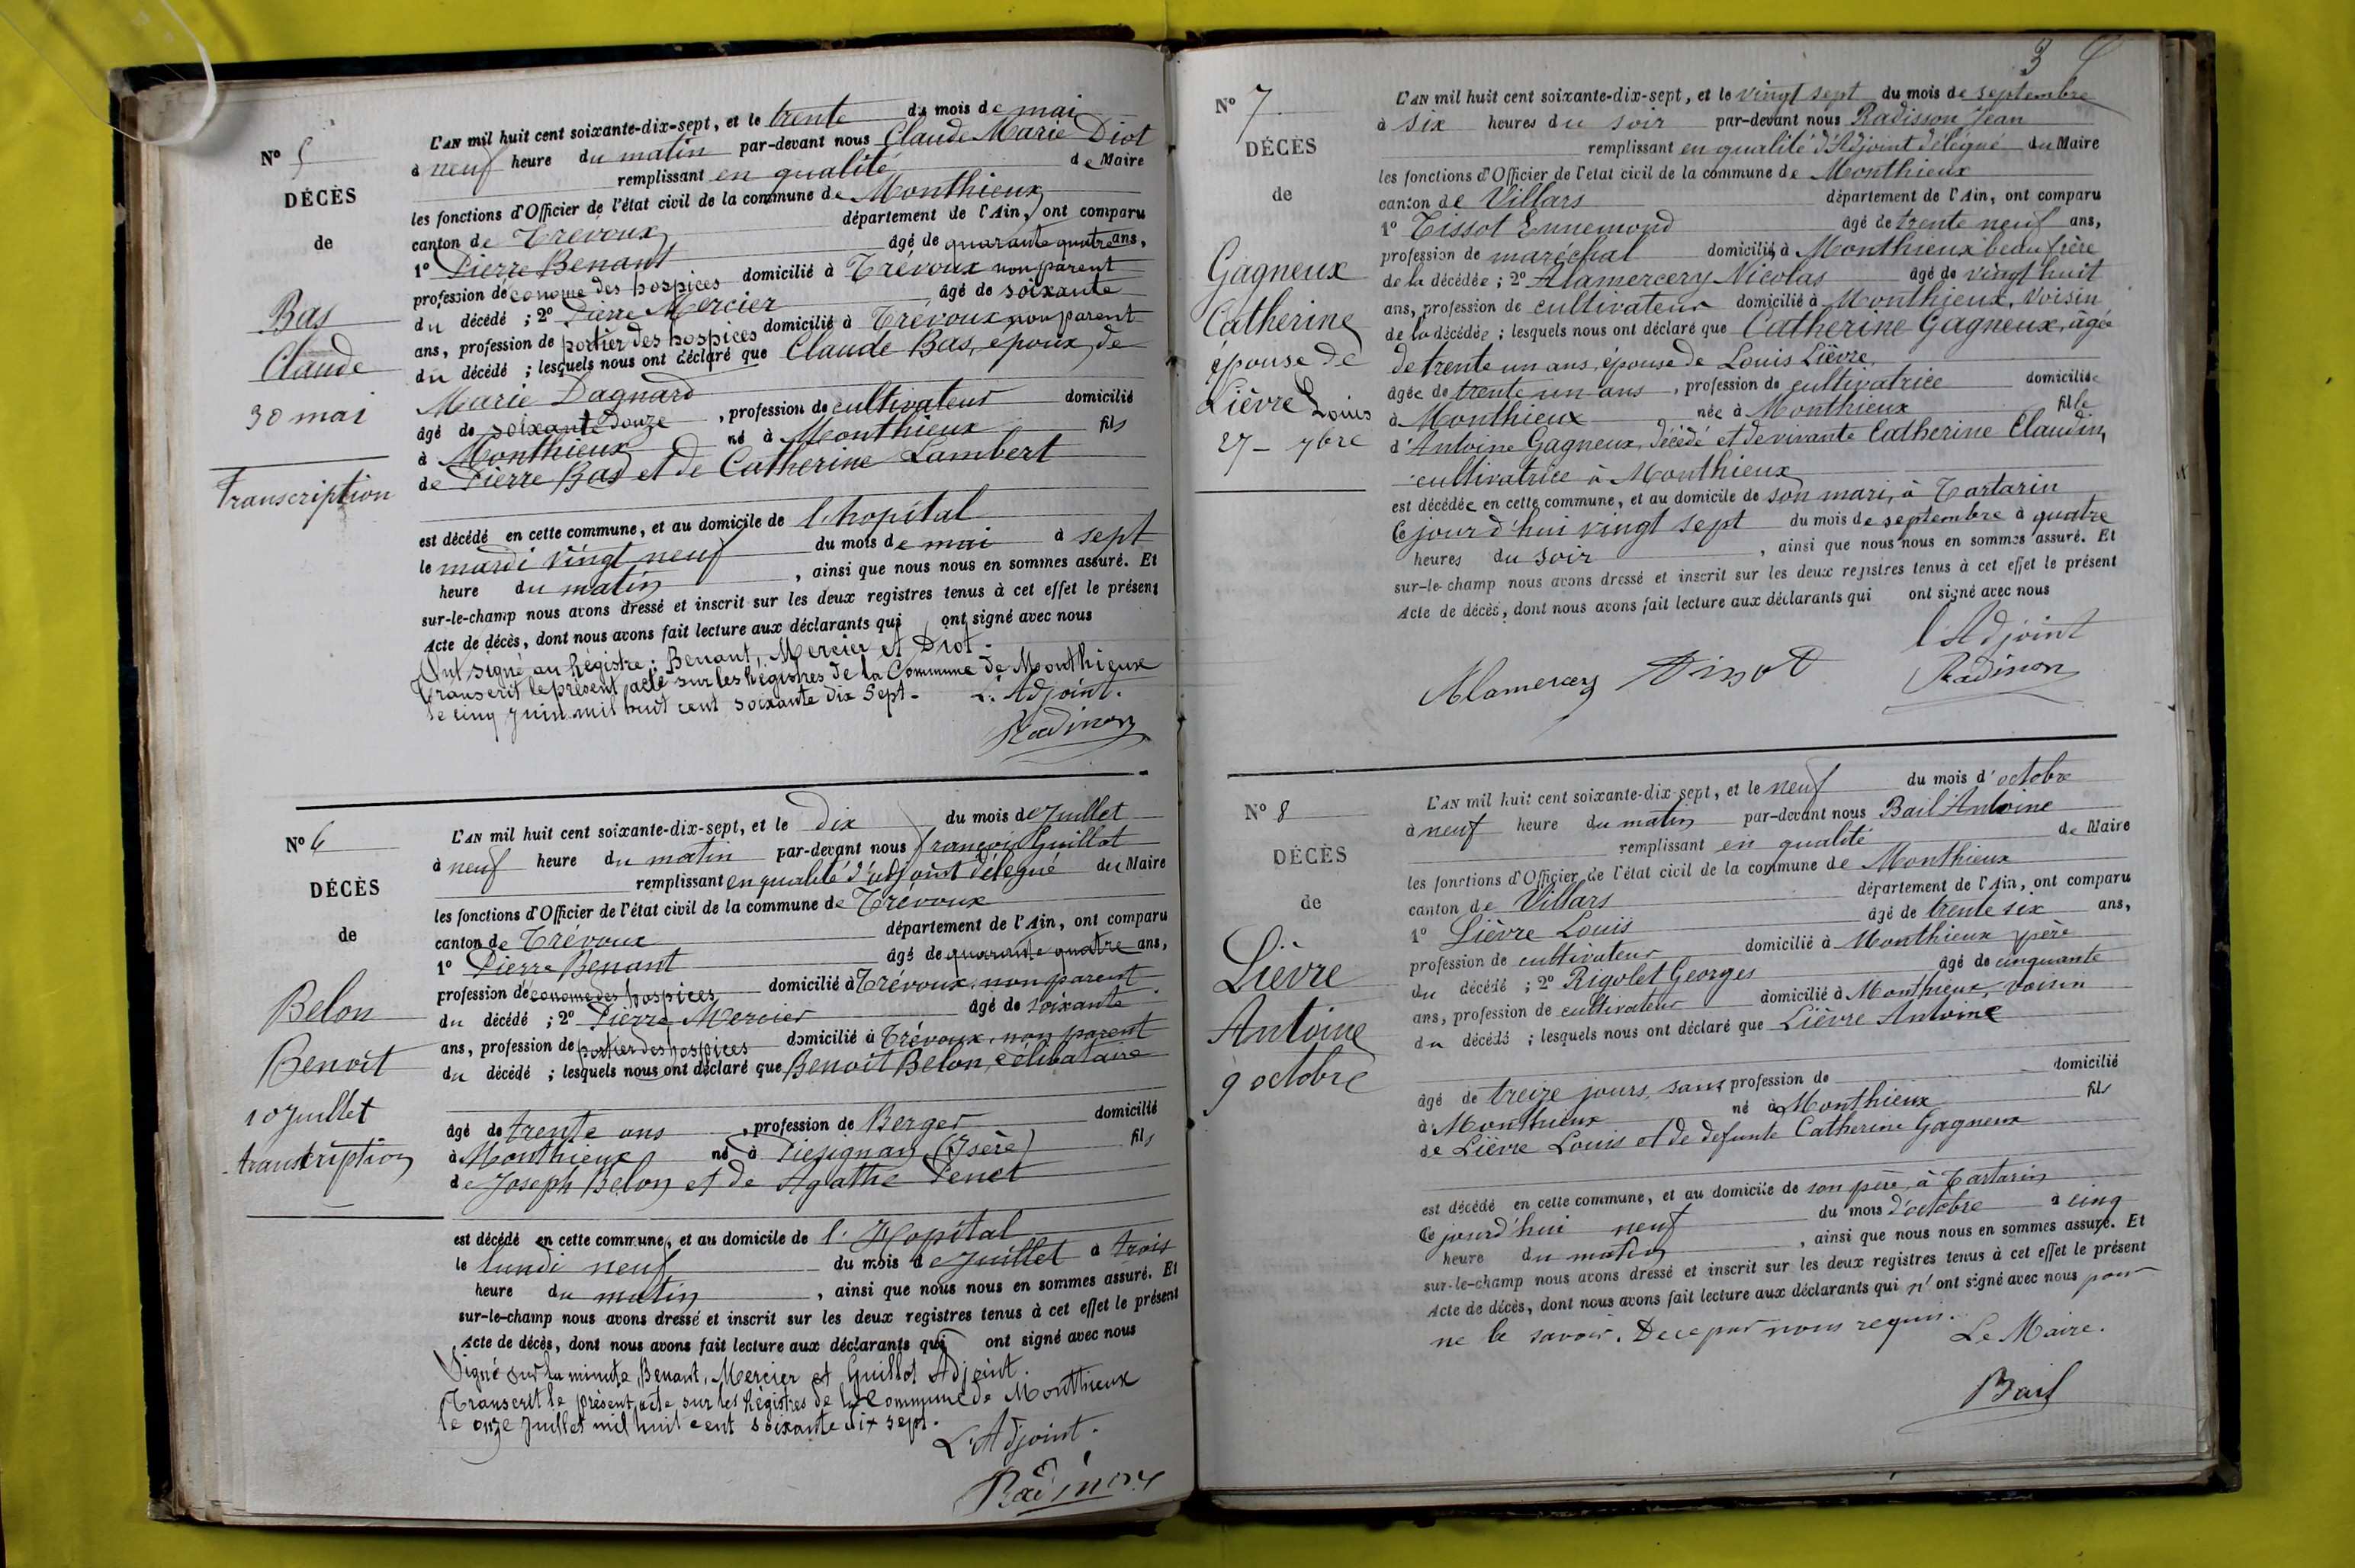 N° 5
DÉCÈS
de
Bas
Claude
30 mai
Transcription
L'AN mil huit cent soixante-dix-sept, et le trente du mois de mai
à neuf heure du matin par-devant nous Claude Marie Diot
remplissant en qualité de Maire
les fonctions d'Officier de l'état civil de la commune de Monthieux
canton de Trévoux département de l'Ain, ont comparu
1° Pierre Benant âgé de quarante quatre ans,
profession de économe des hospices domicilié à Trévoux non parent
du décédé ; 2° Pierre Mercier âgé de soixante
ans, profession de portier des hospices domicilié à Trévoux non parent
du décédé ; lesquels nous ont déclaré que Claude Bas, époux de
Marie Dagnard
âgé de soixante douze , profession de cultivateur domicilié
à Monthieux né à Monthieux fils
de Pierre Bas et de Catherine Lambert
est décédé en cette commune, et au domicile de l'hopital
le mardi vingt neuf du mois de mai à sept
heure du matin , ainsi que nous nous en sommes assuré. Et
sur-le-champ nous avons dressé et inscrit sur les deux registres tenus à cet effet le présent
Acte de décès, dont nous avons fait lecture aux déclarants qui ont signé avec nous
Ont signé au Régistre : Benant, Mercier et Diot.
Transcrit le présent acte sur les Régistres de la Commune de Monthieux
le cinq juin mil huit cent soixante dix Sept. L'Adjoint.
Radisson
N° 6
DÉCÈS
de
Belon
Benoit
10 Juillet
transcription
L'AN mil huit cent soixante-dix-sept, et le dix du mois de Juillet
à neuf heure du matin par-devant nous François Guillot
remplissant en qualité d'adjoint délégué du Maire
les fonctions d'Officier de l'état civil de la commune de Trévoux
canton de Trévoux département de l'Ain, ont comparu
1° Pierre Benant âgé de quarante quatre ans,
profession de économe des hospices domicilié à Trévoux, non parent
du décédé ; 2° Pierre Mercier âgé de soixante
ans, profession de portier des hospices domicilié à Trévoux, non parent
du décédé ; lesquels nous ont déclaré que Benoit Belon, célibataire
âgé de trente ans , profession de Berger domicilié
à Monthieux né à (Isère) fils
de Joseph Belon et de Agathe Penet
est décédé en cette commune, et au domicile de l'Hopital
le lundi neuf du mois de Juillet à trois
heure du matin , ainsi que nous nous en sommes assuré. Et
sur-le-champ nous avons dressé et inscrit sur les deux registres tenus à cet effet le présent
Acte de décès, dont nous avons fait lecture aux déclarants qui ont signé avec nous
Signé sur la minute, Benant, Mercier et Guillot Adjoint.
Transcrit le présent acte sur les Régistres de la Commune de Monthieux
le onze Juillet mil huit cent soixante dix sept.
L'Adjoint.
Radisson
3
N° 7
DÉCÈS
de
Gagneux
Catherine
épouse de
Lièvre Louis
27 - 7bre
L'AN mil huit cent soixante-dix-sept, et le vingt sept du mois de septembre
à six heures du soir par-devant nous Radisson Jean
remplissant en qualité d'Adjoint délégué du Maire
les fonctions d'Officier de l'état civil de la commune de Monthieux
canton de Villars département de l'Ain, ont comparu
1° Tissot Ennemond âgé de trente neuf ans,
profession de maréchal domicilié à Monthieux beau frère
de la décédée ; 2° Alamercery Nicolas âgé de vingt huit
ans, profession de cultivateur domicilié à Monthieux, voisin
de la décédée ; lesquels nous ont déclaré que Catherine Gagneux, âgée
de trente un ans, épouse de Louis Lièvre
âgée de trente un ans , profession de cultivatrice domiciliée
à Monthieux née à Monthieux fille
d'Antoine Gagneux, décédé et de vivante Catherine Claudin,
cultivatrice à Monthieux
est décédée en cette commune, et au domicile de son mari, à Tartarin
Ce jourd'hui vingt sept du mois de septembre à quatre
heures du soir , ainsi que nous nous en sommes assuré. Et
sur-le-champ nous avons dressé et inscrit sur les deux registres tenus à cet effet le présent
Acte de décès, dont nous avons fait lecture aux déclarants qui ont signé avec nous
l'Adjoint
Alamercery Tissot Radisson
N° 8
DÉCÈS
de
Lièvre
Antoine
9 octobre
L'AN mil huit cent soixante-dix-sept, et le neuf du mois d'octobre
à neuf heure du matin par-devant nous Bail Antoine
remplissant en qualité de Maire
les fonctions d'Officier de l'état civil de la commune de Monthieux
canton de Villars département de l'Ain, ont comparu
1° Lièvre Louis âgé de trente six ans,
profession de cultivateur domicilié à Monthieux père
du décédé ; 2° Rigolet Georges âgé de cinquante
ans, profession de cultivateur domicilié à Monthieux, voisin
du décédé ; lesquels nous ont déclaré que Lièvre Antoine
âgé de treize jours, sans profession de domicilié
à Monthieux né à Monthieux fils
de Lièvre Louis et de defunte Catherine Gagneux
est décédé en cette commune, et au domicile de son père, à Tartarin
Ce jourd'hui neuf du mois d'octobre à cinq
heure du matin , ainsi que nous nous en sommes assuré. Et
sur-le-champ nous avons dressé et inscrit sur les deux registres tenus à cet effet le présent
Acte de décès, dont nous avons fait lecture aux déclarants qui n'ont signé avec nous pour
ne le savoir. De ce par nous requis. Le Maire.
Bail